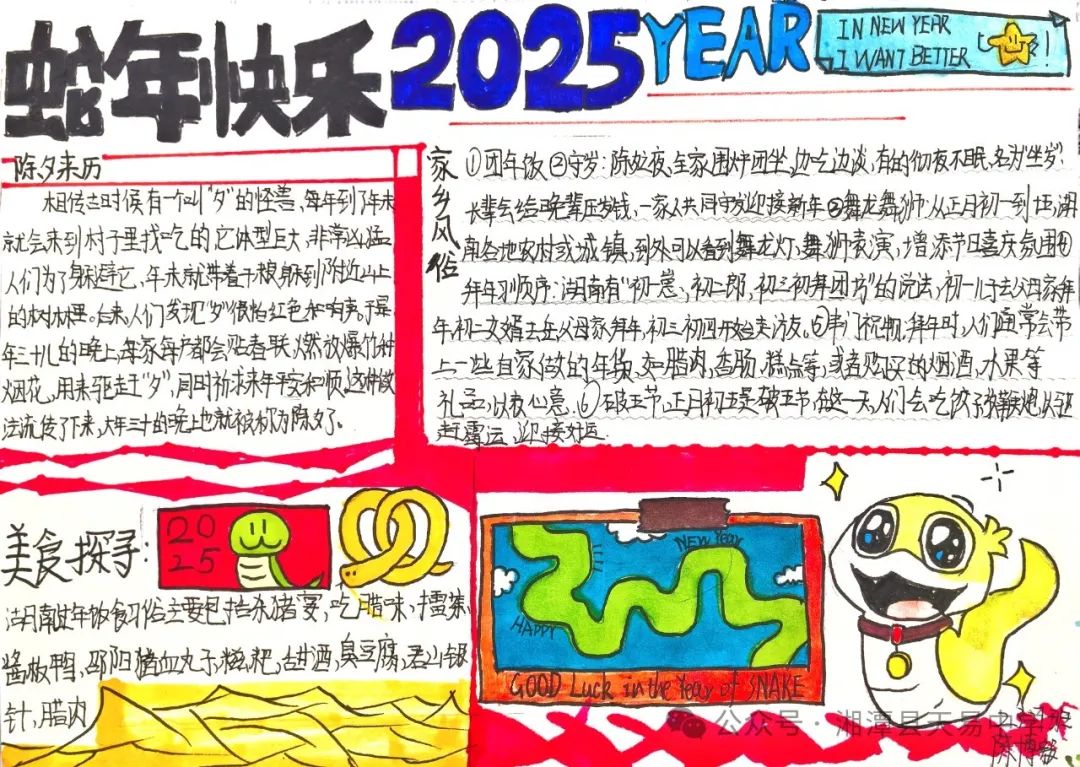 蛇年快乐 2025 YEAR
IN NEW YEAR
I WANT BETTER
!
除夕来历
相传古时候有一个叫“夕”的怪兽,每年到了年末
就会来到村子里找吃的它体型巨大,非常凶猛
人们为了躲避它,年末就带着干粮躲到附近山上
的树林里。后来,人们发现“夕”很怕红色和响声。于是
年三十儿的晚上,每家每户都会贴春联,燃放爆竹
烟花,用来驱赶走“夕”,同时祈求来年平安和顺,这种做
法流传了下来,大年三十的晚上也就被称为除夕了。
家乡风俗
①团年饭②守岁:除夕夜,全家围炉团坐,边吃边谈,有的彻夜不眠,名为“坐岁”.
长辈会给晚辈压岁钱,一家人共同守岁迎接新年③舞龙舞狮:从正月初一到十五,湖
南各地农村或城镇,到处可以看到舞龙灯,舞狮表演,增添节日喜庆氛围④
拜年习顺序:湖南有“初一崽、初二郎,初三初四
的说法,初一儿子去父母家拜
年,初二女婿去岳父母家拜年,初三初四开始走访友。⑤串门祝物,拜年时,人们通常会带
上一些自家做的年货,如腊肉,香肠,糕点等,或者购买的烟酒,水果等
礼品,以表心意.⑥破五节,正月初五是破五节,在这一天,人们会吃饺子
赶霉运,迎接好运.
美食探寻:
20
25
湖南过年饮食习俗主要包括杀猪宴,吃腊味,擂茶,
酱板鸭,邵阳猪血丸子,糍粑,甜酒,臭豆腐,君山银
针,腊肉
NEW Year
HAPPY
GOOD Luck in the Year of SNAKE
公众号·湘潭县天易中学
陈博